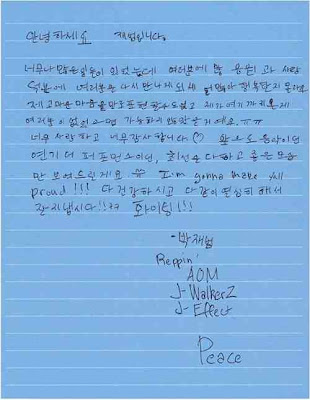 안녕하세요 재범입니다.
너무나 많은 일들이 있었는데 여러분에 많은 응원과 사랑
덕분에 여러분을 다시 만나게 되네
제 고마운 마음을 말로 표현할 수도 없고 제가 여기까지 온게
여러분이 없었으면 가능하지 않았을거에요. ㅠㅠ
너무 사랑하고 너무 감사합니다 ♡ 앞으로 음악이던
연기던 퍼포먼스이던, 최선을 다하고 좋은 모습
만 보여드릴게요 I'm gonna make y'all
proud!!! 다 건강하시고 다같이 열심히 해서
잘 지냅시다!!?? 화이팅!!!
- 박재범
Reppin'
AOM
J-WalkerZ
J-Effect
Peace